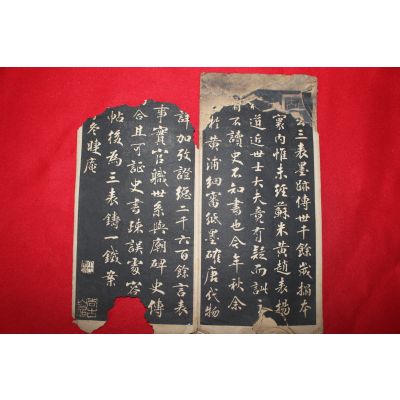 三表墨跡傳世千餘歲搨本
寰內惟未經蘇米黃趙表揚
道近世士大夫竟有疑而訓
不讀史不知書也今年秋余
於黃浦細審紙墨確唐代物
詳加攷證總二千六百餘言表
事實官職世系與廟碑史傳
合且可証史書踈誤處容
帖後為三表鑄一鐵案
冬睫庵